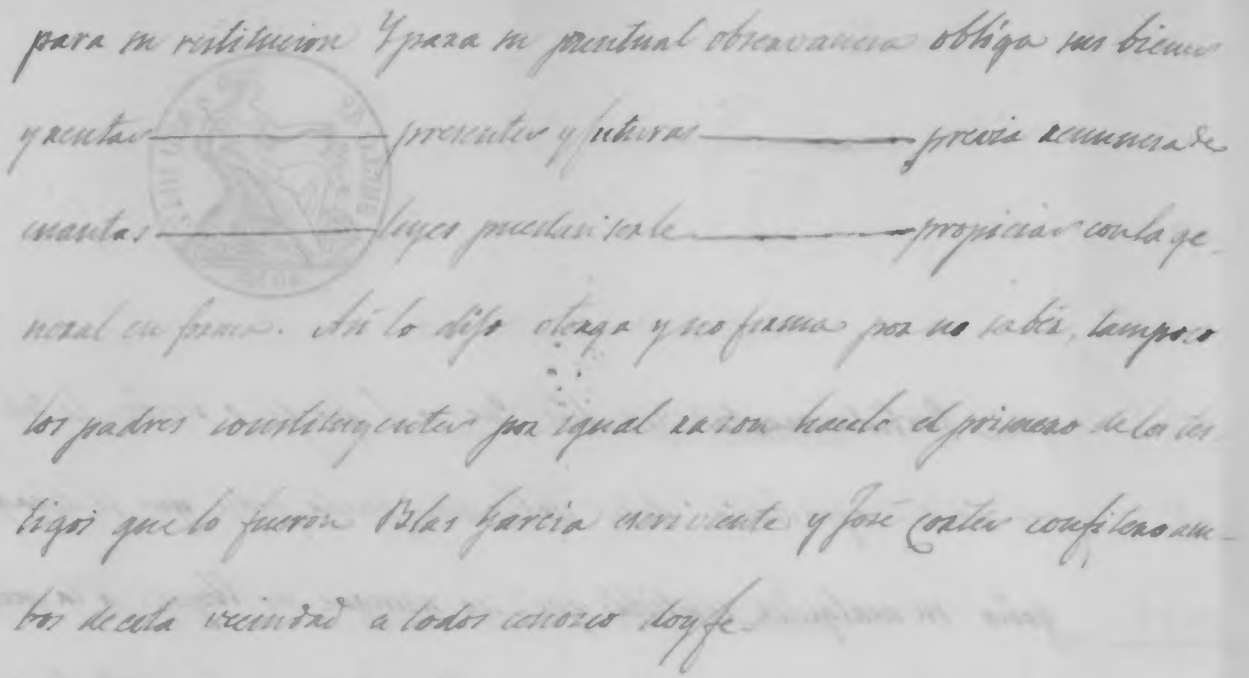 para su restitucion Y para su puntual observancia obliga sus bienes
y rentas presentes y futuras previa renuncia de
cuantas leyes puedan serle propicias con la ge-
neral en forma. Asi lo dijo otorga y no firma por no saber, tampoco
los padres constituyentes por igual razon hacelo el primero de los tes-
tigos que lo fueron Blas Garcia escriviente y José Cortes confitero am-
bos de esta vecindad a todos conozco doy fe-